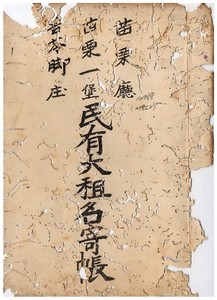 苗栗廳
苗栗一堡民有大租名寄帳
脚庄